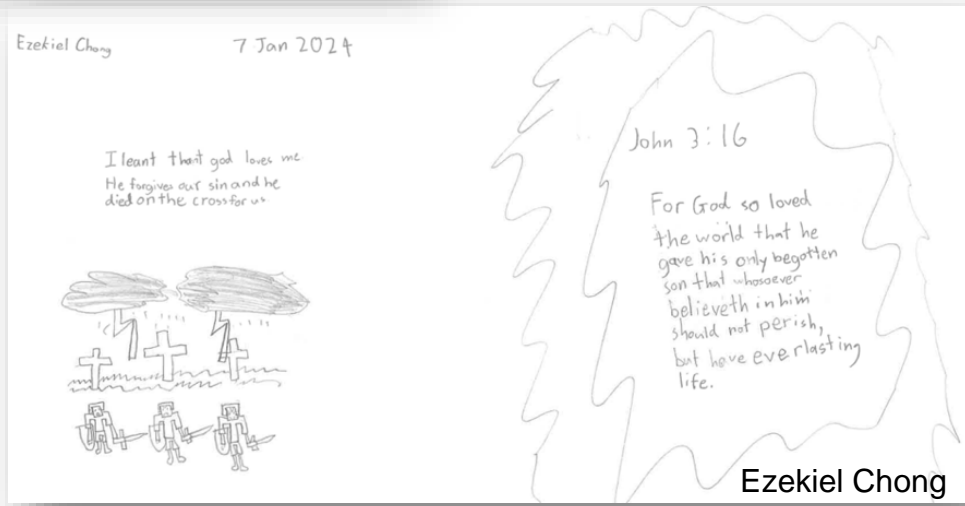 Ezekiel Chong
7 Jan 2024
I leant thant god loves me
He forgives our sin and he
died on the cross for us
John 3:16
For God so loved
the world that he
gave his only begotten
son that whosoever
believeth in him
should not perish,
but have everlasting
life.
Ezekiel Chong